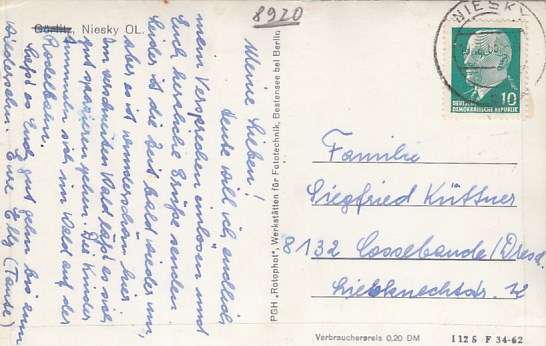 Görlitz, Niesky OL.
8920
Meine Lieben!
Heute will ich endlich
mein Versprechen einlösen und
Euch herzliche Grüße senden.
Leider ist die Zeit bald wieder um,
aber es ist wunderschön hier
Im verschneiten Wald läßt es sich
gut spazieren gehn. Die Kinder
tummeln sich im Wald auf der
Rodelbahn.
Laßt es Euch gut gehn bis zum
Wiedersehn. Eure Elly (Tante)
PGH „Rotophot", Werkstätten für Fototechnik, Bestensee bei Berlin
NIESKY
10
DEUTSCHE
DEMOKRATISCHE REPUBLIK
Familie
Siegfried Küttner
8132 Cossebaude/Dresd.
Liebknechtstr. 12
Verbraucherpreis 0,20 DM
I 12 5 F 34-62